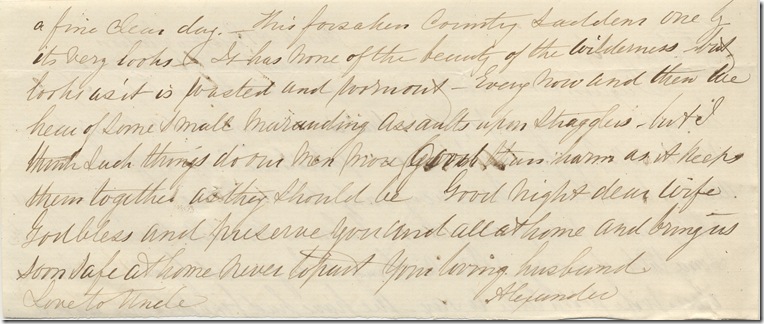 a fine clear day. – This forsaken Country saddens one by
its very looks – It has none of the beauty of the wilderness – but
looks as it is wasted and wornout – Every now and then we
hear of some small marauding assaults upon stragglers – but I
think such things do our men more good than harm as it keeps
them together as they should be Good Night dear Wife.
God bless and preserve you and all at home and bring us
soon safe at home never to part Your loving husband
Love to Uncle Alexander